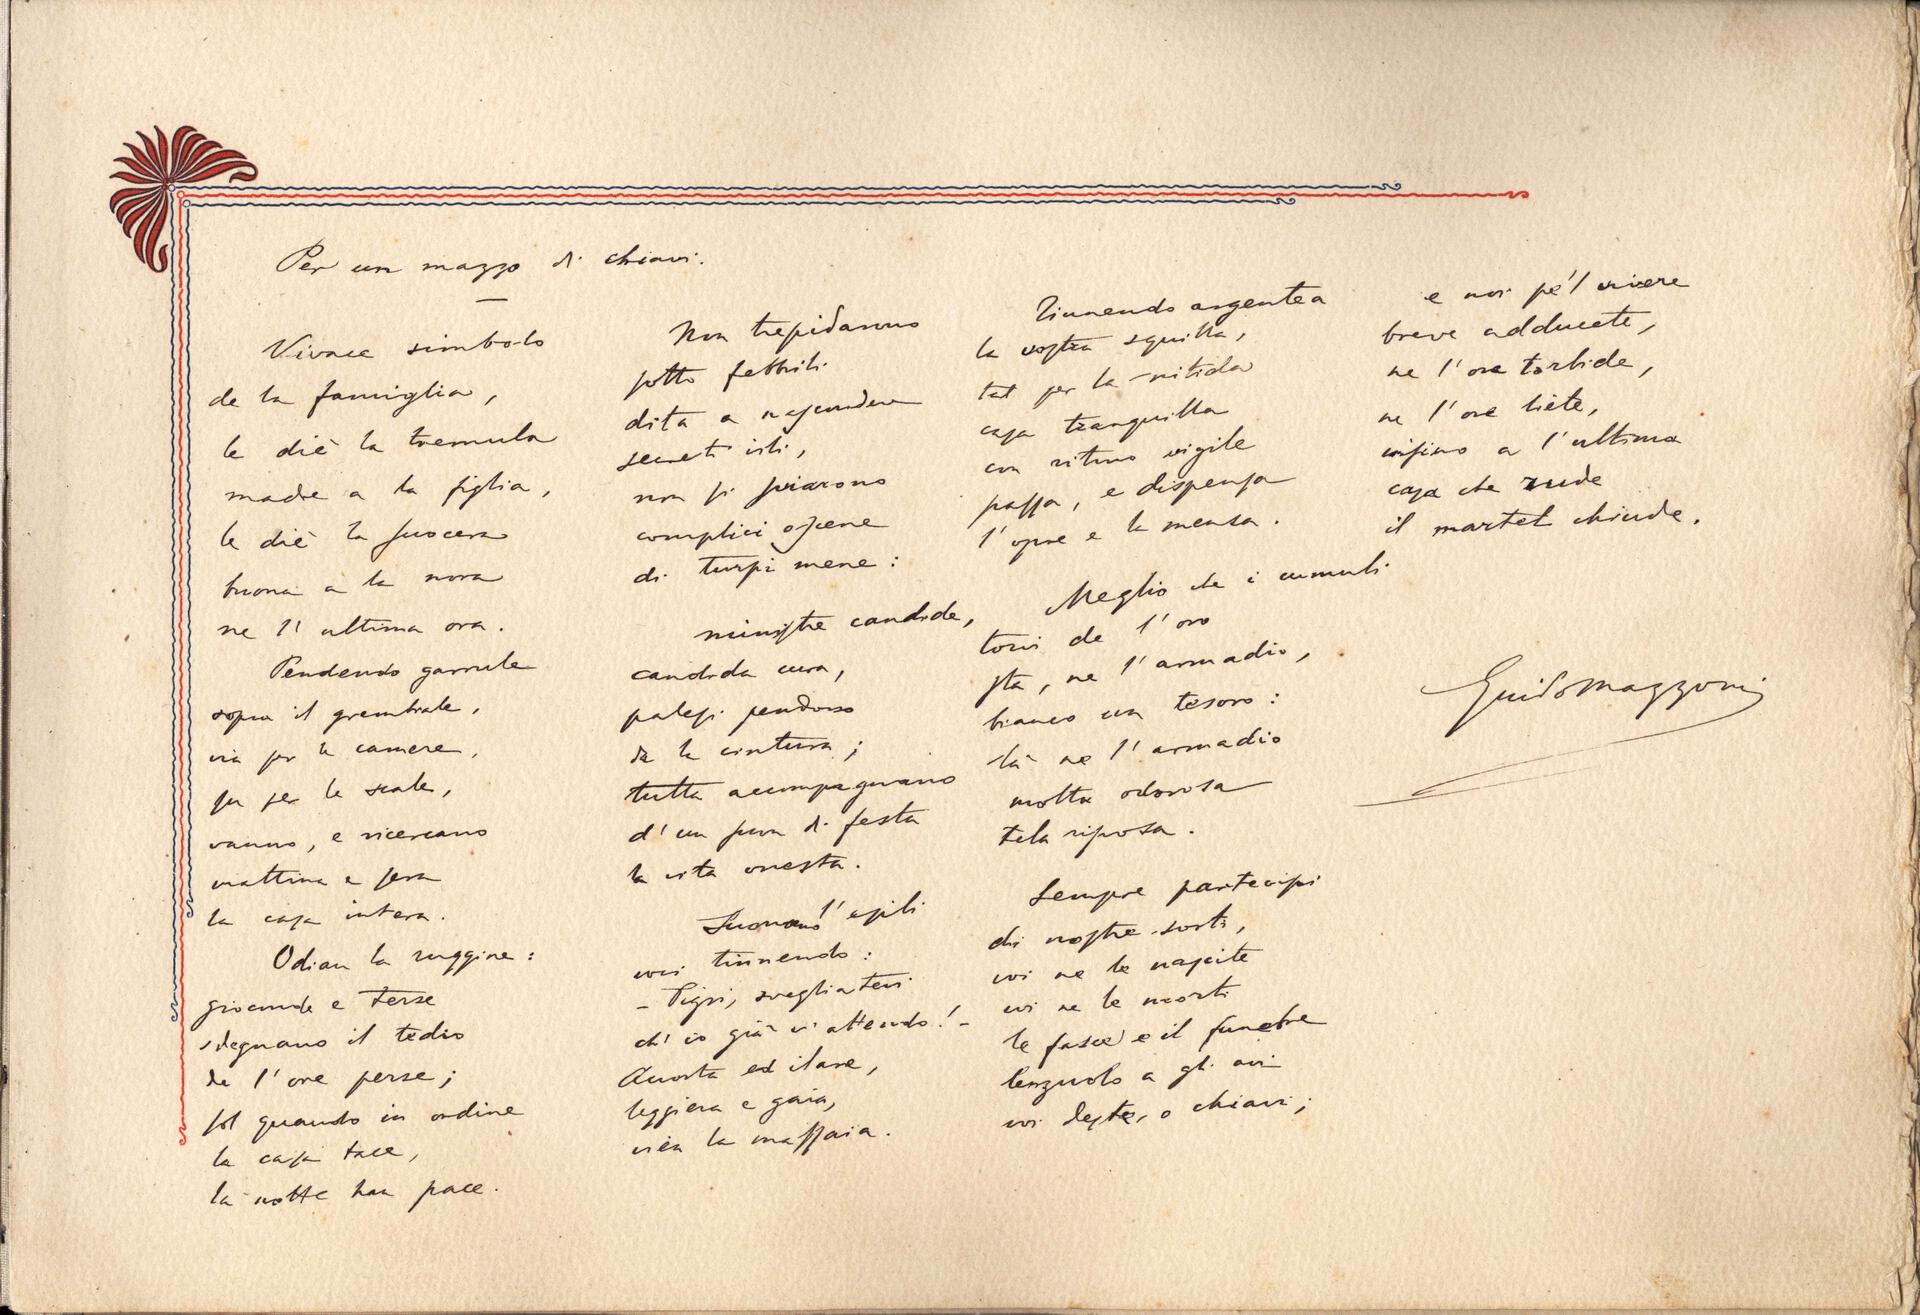 Per un mazzo di chiavi.
Vivace simbolo
de la famiglia,
le diè la tremula
madre a la figlia,
le diè la suocera
buona a la nora
ne l'ultima ora.
Pendendo garrule
sopra il grembiale,
via per le camere,
su per le scale,
vanno, e ricercano
mattina e sera
la casa intera.
Odian la ruggine:
gioconde e terse
sdegnano il tedio
de l'ore perse;
sol quando in ordine
la casa tace,
la notte han pace.
Non trepidarono
sotto febbrili
dita a nascondere
secreti vili,
non si prestarono
complici oscene
di turpi mene:
ministre candide,
candida cura,
palesi pendono
da la cintura;
tutta accompagnano
d'un suon di festa
la vita onesta.
Suonano l'agili
voci tinnendo:
– Pigri, svegliatevi
ch'io già v'attendo! –
Accorta ed ilare,
leggiera e gaia,
vien la massaia.
Tinnendo argentea
la vostra squilla,
tal per la nitida
casa tranquilla
con ritmo vigile
passa, e dispensa
l'opre e la mensa.
Meglio che i cumuli
tolti de l'oro
sta, ne l'armadio,
bianco un tesoro:
là ne l'armadio
molta odorosa
tela riposa.
Sempre partecipi
di nostre sorti,
voi ne le nascite
voi ne le morti
le fasce e il funebre
lenzuolo a gli avi
voi deste, o chiavi;
e noi pe'l vivere
breve adducete,
ne l'ore torbide,
ne l'ore liete,
infino a l'ultima
casa che rude
il martel chiude.
Guido Mazzoni